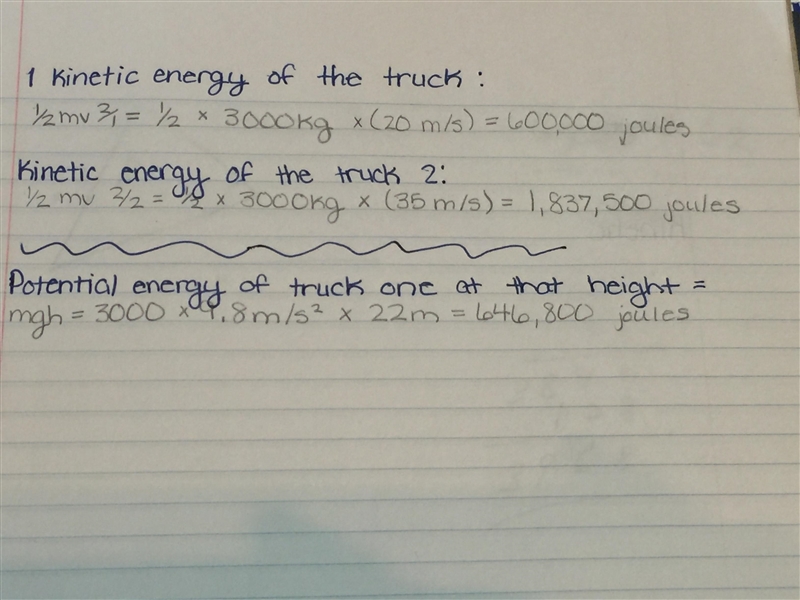 1 Kinetic energy of the truck :
1/2 mv 2/1 = 1/2 × 3000Kg × (20 m/s) = 600,000 joules
Kinetic energy of the truck 2:
1/2 mv 2/2 = 1/2 × 3000kg × (35 m/s) = 1,837,500 joules
Potential energy of truck one at that height =
mgh = 3000 × 9.8m/s² × 22m = 646,800 joules